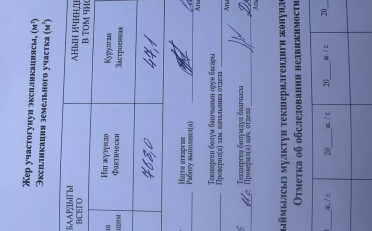 Жер участогунун экспликациясы, (м²)
Экспликация земельного участка (м²)
БААРДЫГЫ
ВСЕГО
АНЫН ИЧИНДЕ
В ТОМ ЧИС
Иш жүзүндө
Фактически
Курулган
Застроенная
763,0
47,1
Ишти аткарган
Работу выполнил(а)
Текшерген бөлүм башчынын орун басары
Проверил(а) зам. начальника отдела
Текшерген бөлүмдүн башчысы
Проверил(а) нач. отдела
ыймылсыз мүлктүн текшерилгендиги жөнүндө
Отметка об обследовании недвижимости
20 ж./г.
20 ж./г.
20 ж./г.
20